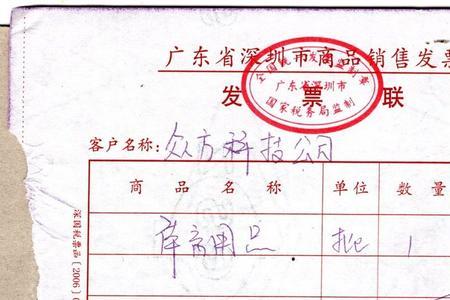 广东省深圳市商品销售发票
全国统一发票监制章
广东省深圳市
国家税务局监制
发票联
客户名称：众方科技公司
商品名称 单位 数量
用品 批 1
深国税票函〔2006〕